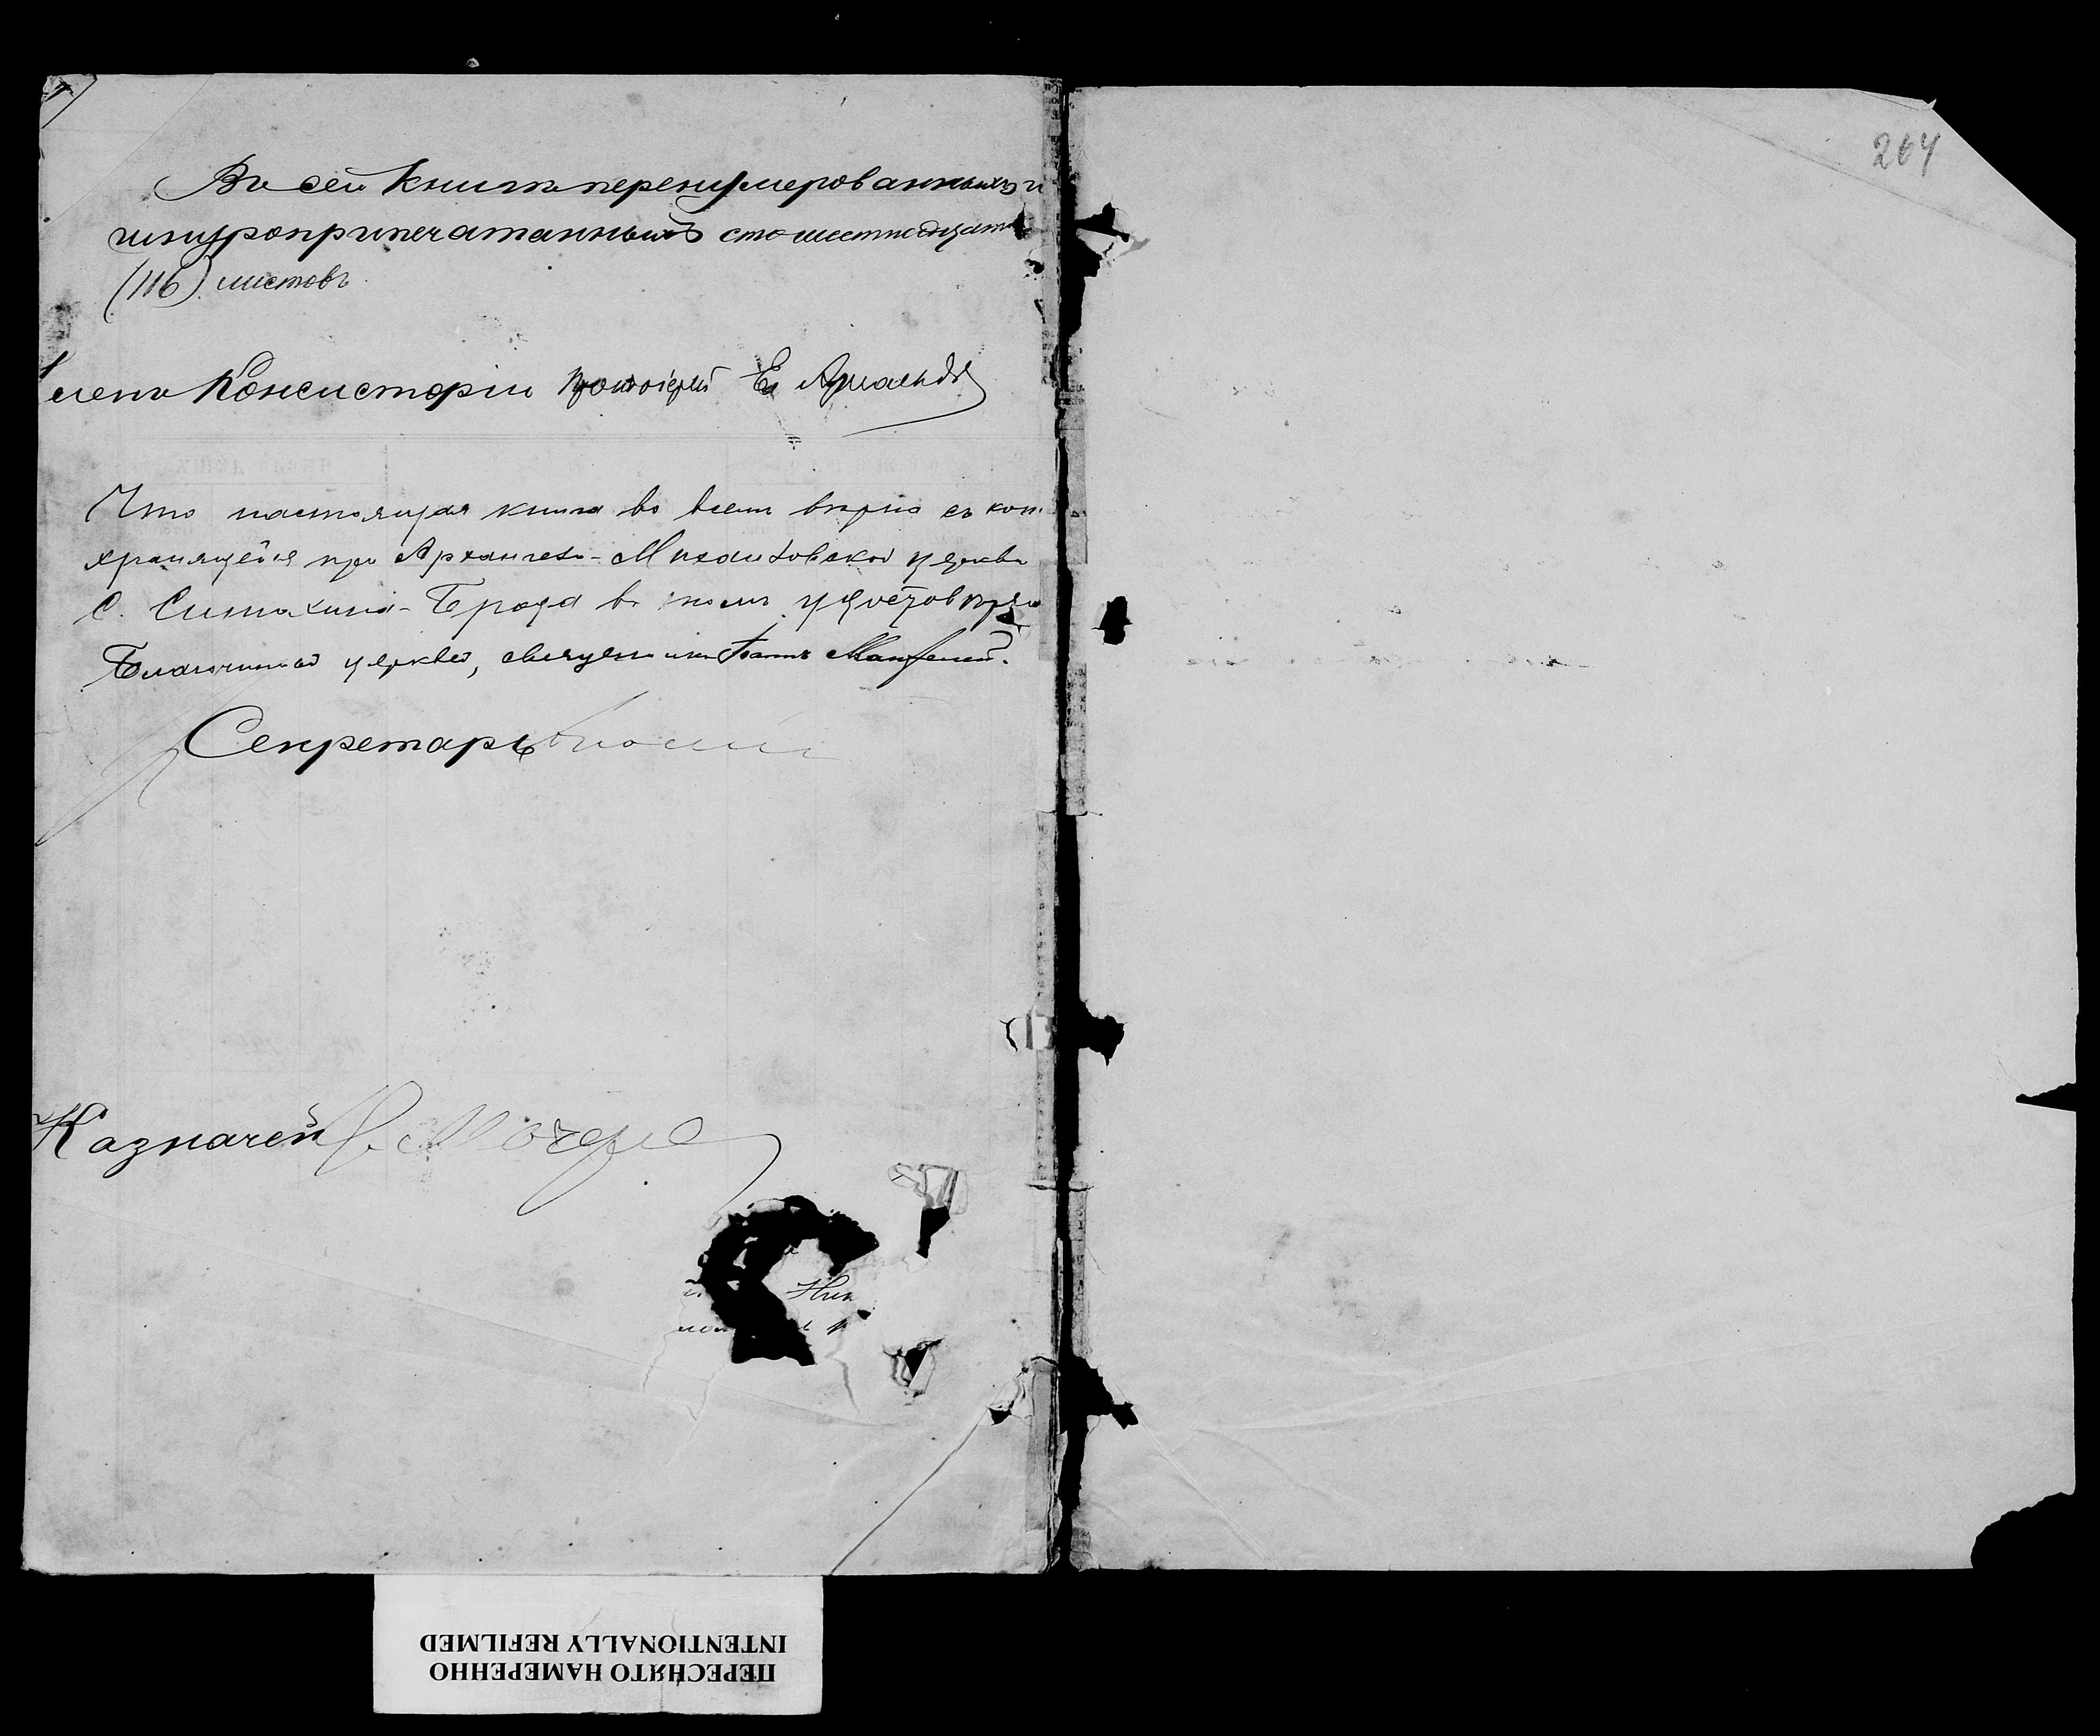 Въ сей книгѣ перенумерованныхъ и
шнуроприпечатанныхъ сто шестнадцать
(116) листовъ
Членъ Консисторіи Протоіерей Е.
Что настоящая книга во всемъ вѣрна съ коп.
хранящейся при Архангело-Михайловской церкви
С. Брода въ томъ удостовѣряю
Благочинный церквей, священникъ
Секретарь
Казначей
Ник
264
ПЕРЕСНЯТО НАМЕРЕННО
INTENTIONALLY REFILMED